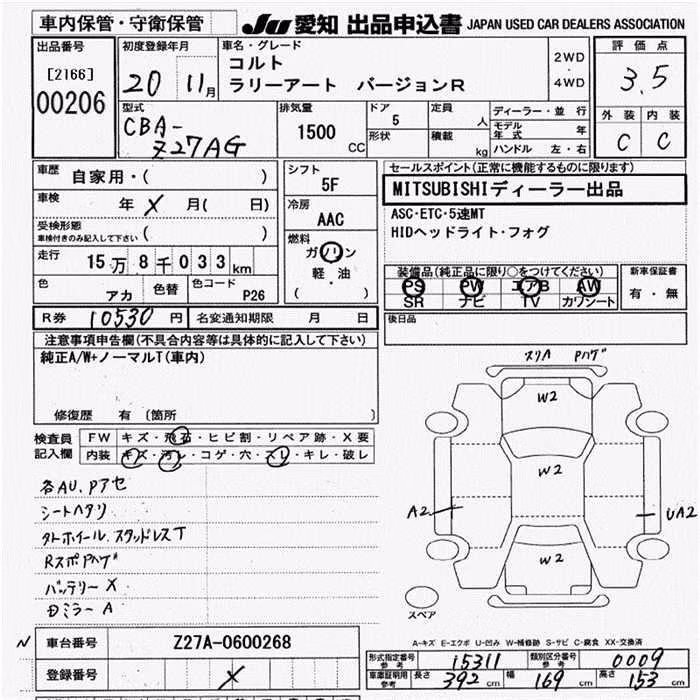 車内保管・守衛保管
JU 愛知 出品申込書 JAPAN USED CAR DEALERS ASSOCIATION
出品番号
[2166]
00206
初度登録年月
20 11月
車名・グレード
コルト
ラリーアート バージョンR
2WD
・
4WD
評価点
3.5
外装 内装
C C
型式
CBA-
Z27AG
排気量
1500 CC
ドア
5
形状
定員
人
積載
kg
ディーラー・並行
モデル年式 年
ハンドル 左・右
車歴
自家用・( )
車検
年 X 月( 日)
受検形態
車検付きのみ記入して下さい ( )
走行
15万8千033km
色
アカ
色替
色コード
P26
シフト
5F
冷房
AAC
燃料
ガソリン
軽・油
( )
セールスポイント(正常に機能するものに限ります)
MITSUBISHIディーラー出品
ASC・ETC・5速MT
HIDヘッドライト・フォグ
装備品(純正品に限り○をつけてください)
PS PW エアB AW
SR ナビ TV カワシート
新車保証書
有・無
R券 10530 円
名変通知期限 月 日
後日品
注意事項申告欄(不具合内容等は具体的に記入して下さい)
純正A/W+ノーマルT(車内)
修復歴 有 (箇所 )
検査員
記入欄
FW キズ・飛石・ヒビ割・リペア跡・X要
内装 キズ・汚レ・コゲ・穴・スレ・キレ・破レ
各AU、Pアセ
シートヘタリ
タトホイール、スタッドレスT
RスポPハゲ
バッテリーX
DミラーA
スリA Pハゲ
W2
W2
A2
UA2
W2
スペア
A-キズ E-エクボ U-凹み W-補修跡 S-サビ C-腐食 XX-交換済
N
車台番号 Z27A-0600268
登録番号 X
形式指定番号 参考 15311
類別区分番号 参考 0009
車庫証明用 参考
長さ 392 cm
幅 169 cm
高さ 153 cm